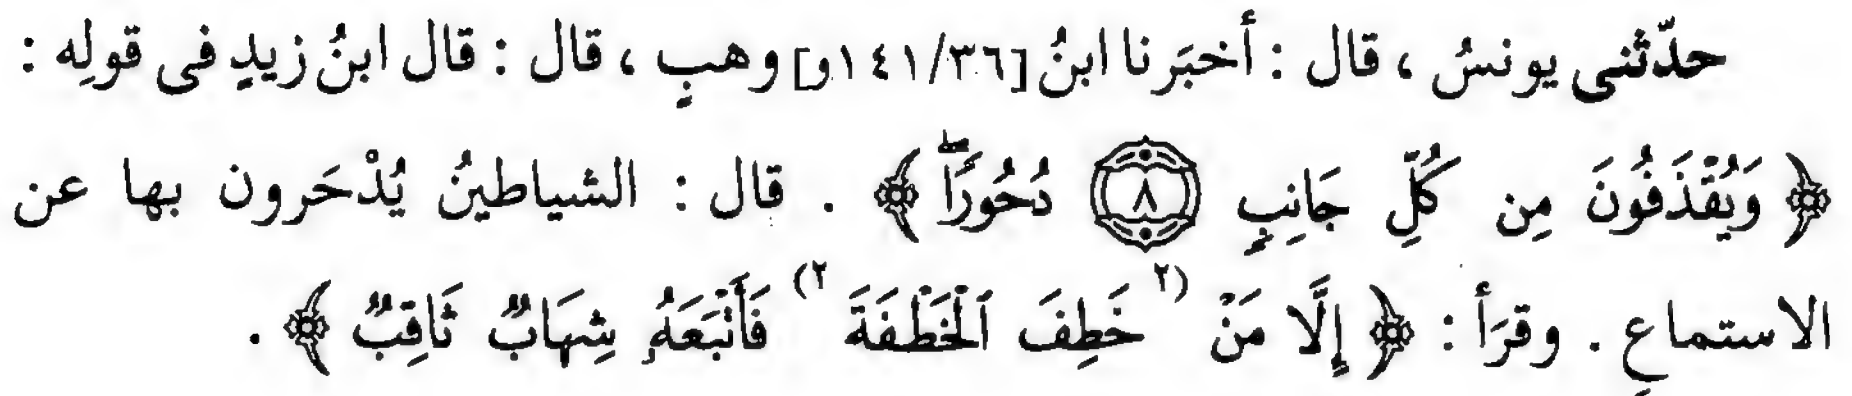 حدّثنى يونسُ ، قال : أخبَرنا ابنُ [١٤١/٣٦و] وهبٍ ، قال : قال ابنُ زيدٍ فى قولِه :
﴿ وَيُقْذَفُونَ مِن كُلِّ جَانِبٍ ٨ دُحُورًا ﴾ . قال : الشياطينُ يُدْحَرون بها عن
الاستماعِ . وقرَأ : ﴿ إِلَّا مَنْ (٢ خَطِفَ ٱلْخَطْفَةَ ٢) فَأَتْبَعَهُ شِهَابٌ ثَاقِبٌ ﴾ .